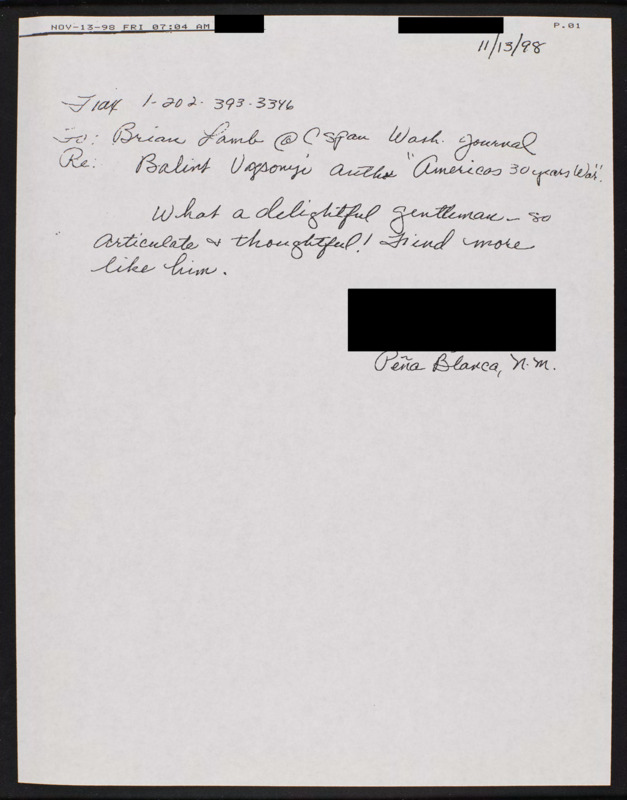 NOV-13-98 FRI 07:04 AM P.01
11/13/98
Fax 1-202-393-3346
To: Brian Lamb @ C Span Wash. Journal
Re: Balint Vazsonyi author "Americas 30 years War".
What a delightful gentleman - so
articulate & thoughtful! Find more
like him.
Peña Blanca, N.M.